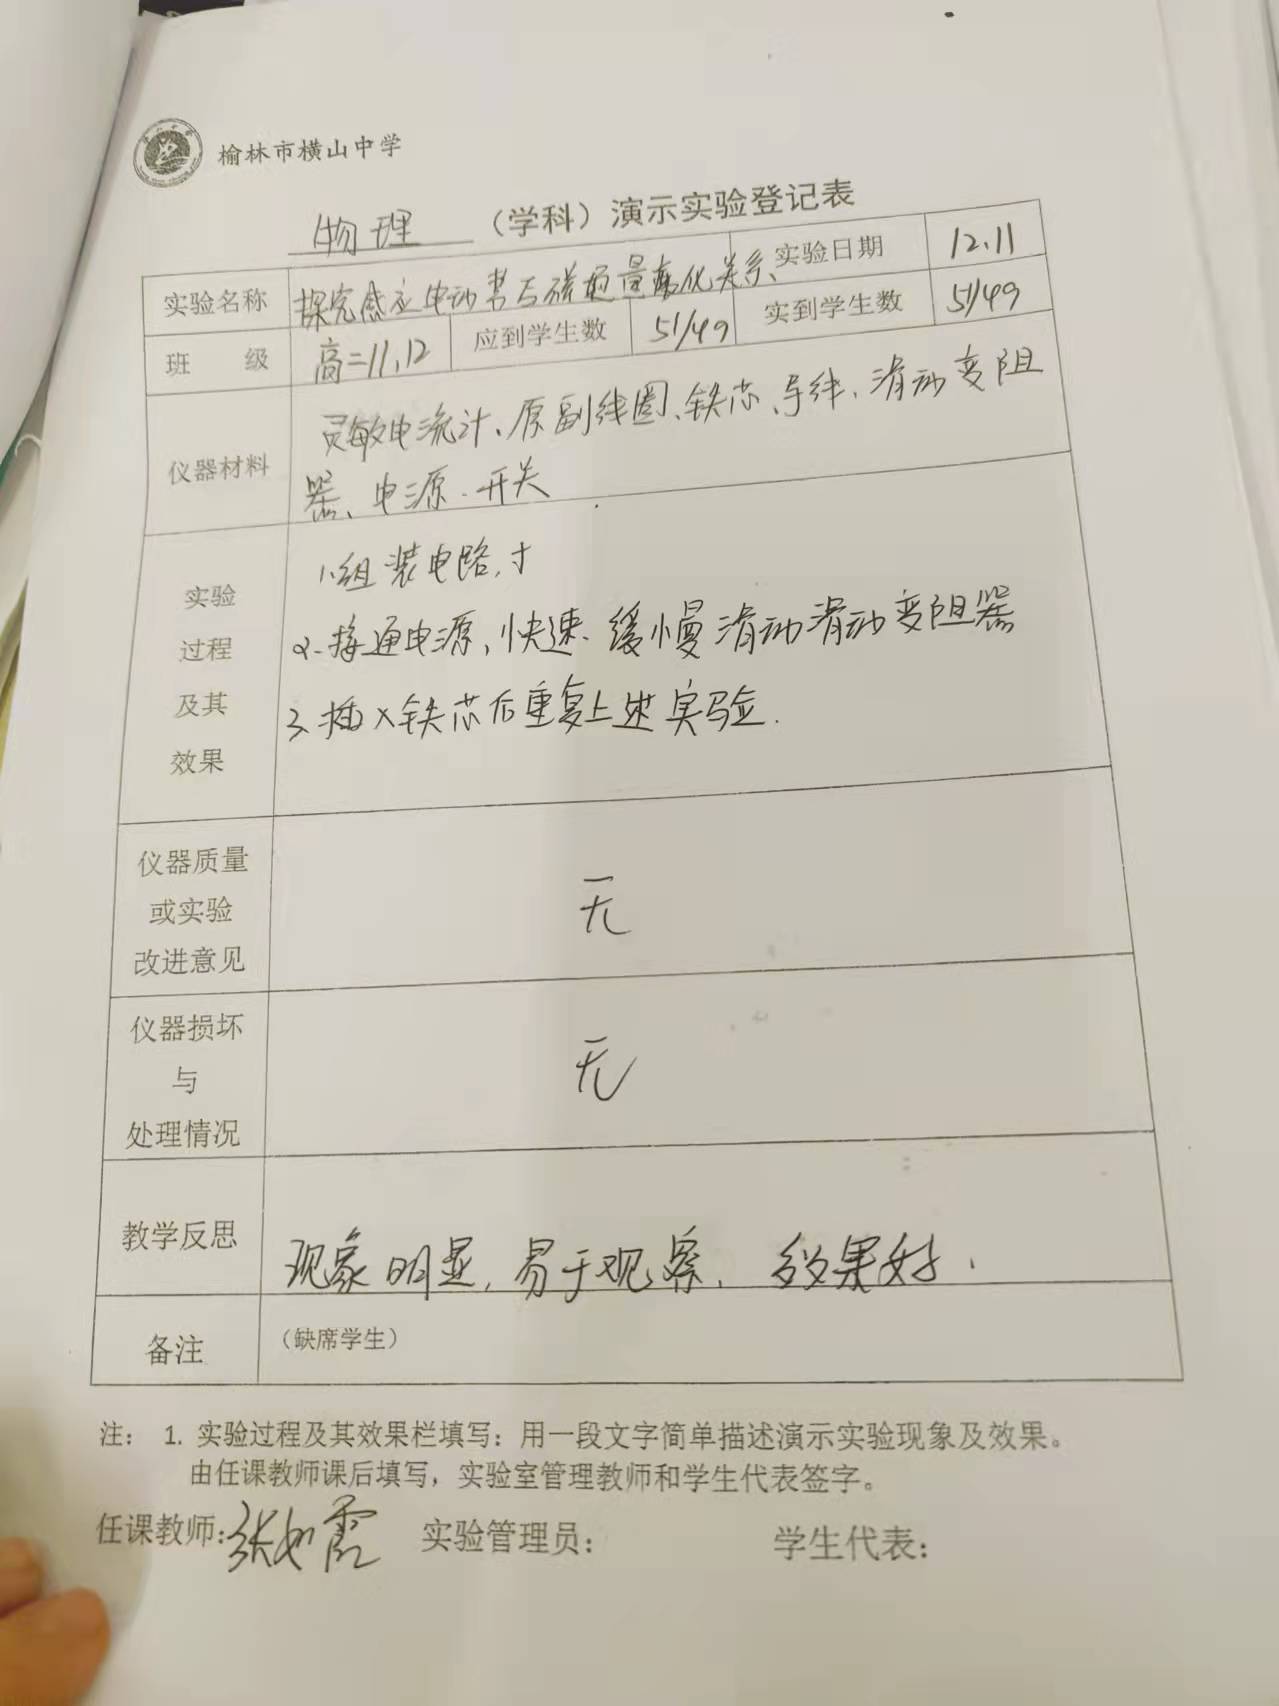 榆林市横山中学
物理 （学科）演示实验登记表
实验名称 探究感应电动势与磁通量变化关系 实验日期 12.11
班 级 高二11,12 应到学生数 51/49 实到学生数 51/49
仪器材料 灵敏电流计、原副线圈、铁芯、导线、滑动变阻
器、电源.开关
实验
过程
及其
效果
1.组装电路.
2.接通电源,快速.缓慢滑动滑动变阻器
3.插入铁芯后重复上述实验.
仪器质量
或实验
改进意见
无
仪器损坏
与
处理情况
无
教学反思
现象明显,易于观察. 效果好.
备注 （缺席学生）
注： 1. 实验过程及其效果栏填写：用一段文字简单描述演示实验现象及效果。
由任课教师课后填写，实验室管理教师和学生代表签字。
任课教师: 实验管理员: 学生代表: